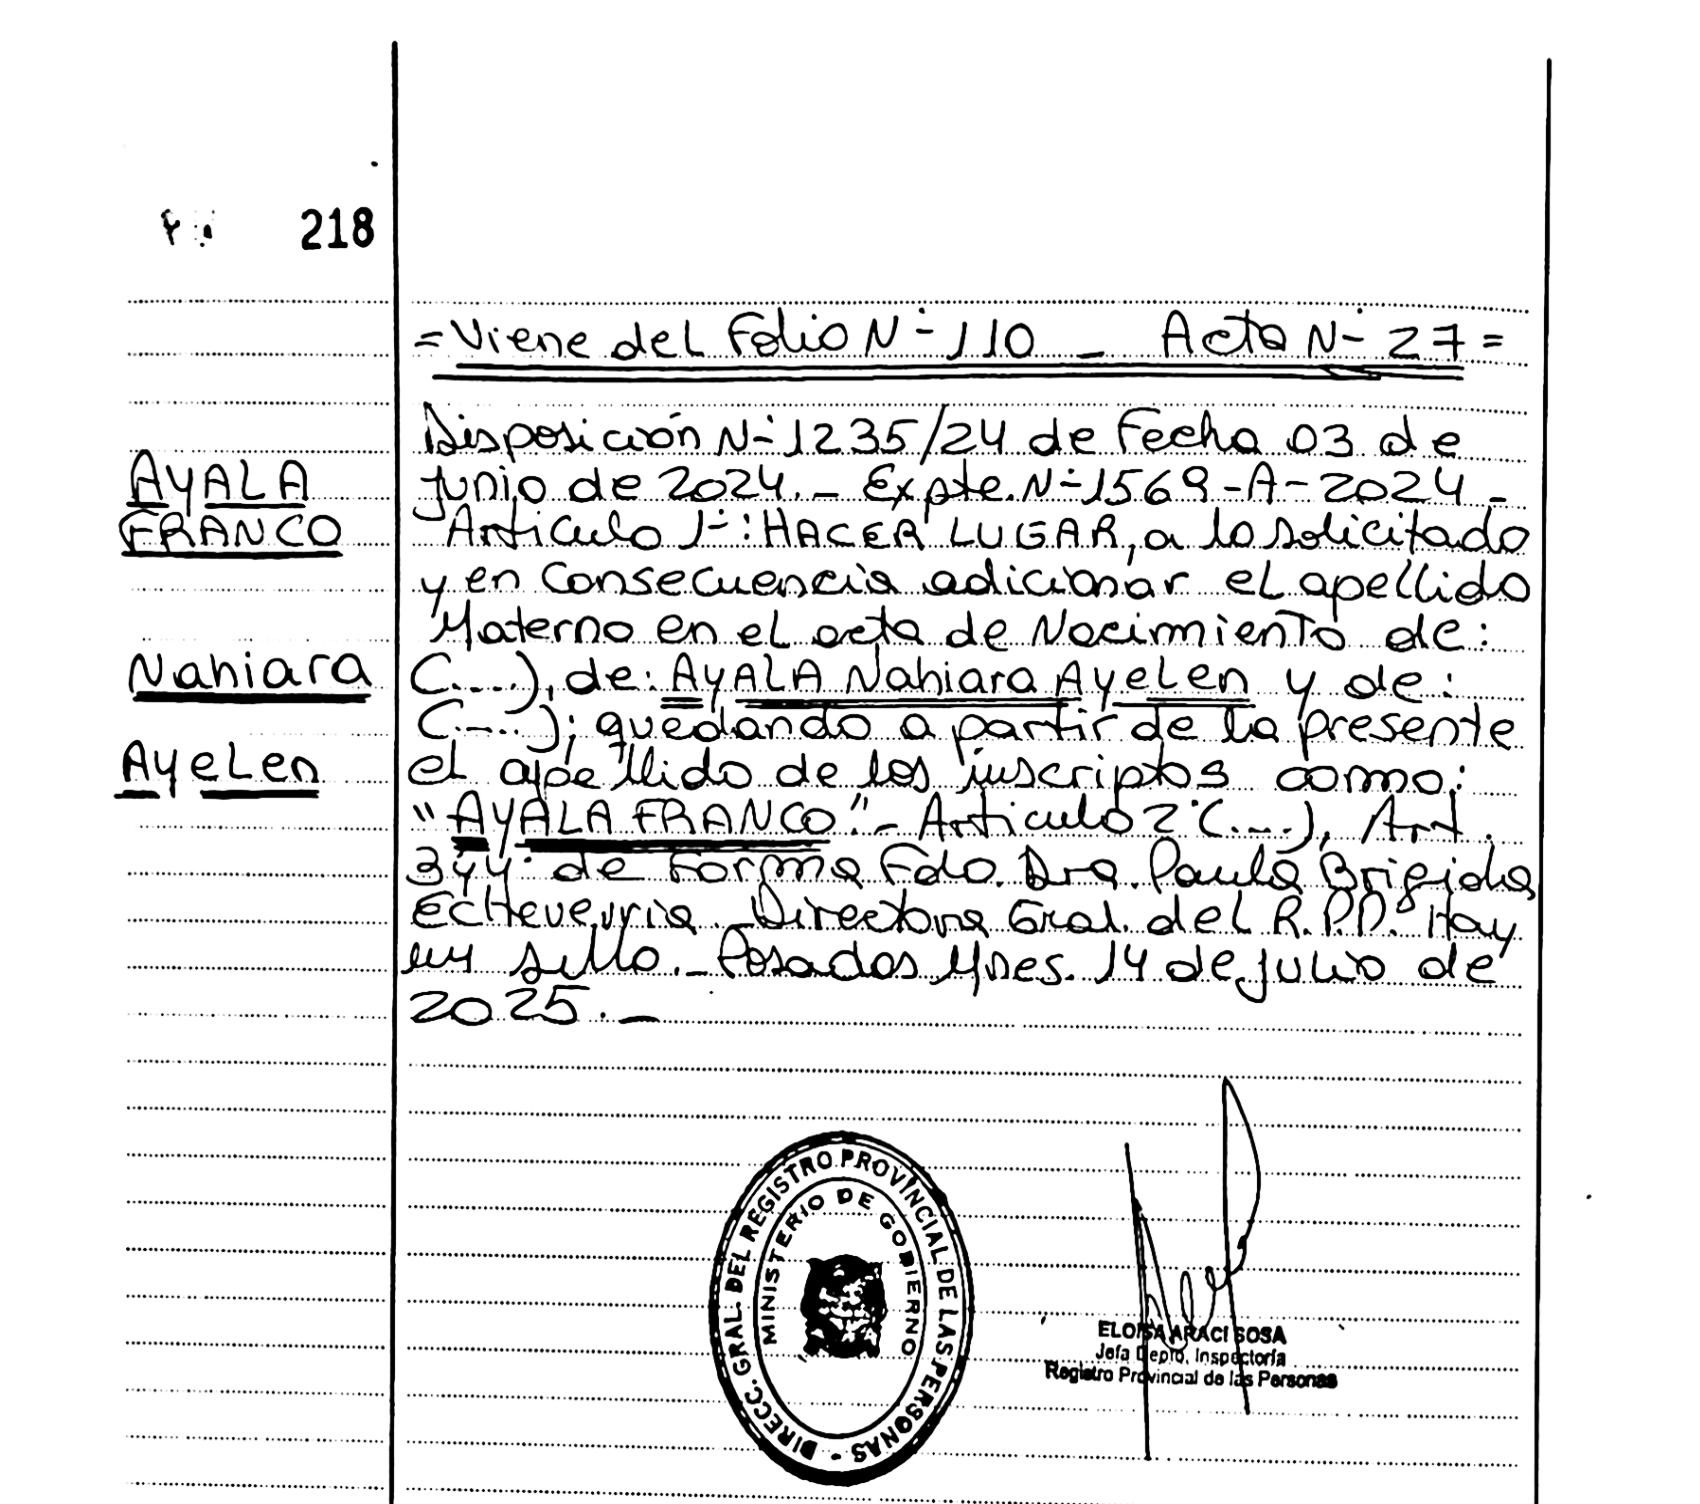 218
= Viene del Folio Nº 110 _ Acta Nº 27 =
Disposición Nº 1235/24 de Fecha 03 de
Junio de 2024._ Expte. Nº 1569-A-2024_
AYALA
FRANCO
Articulo 1º: HACER LUGAR, a lo solicitado
y en Consecuencia adicionar el apellido
Materno en el acta de Nacimiento de:
Nahiara
(....), de: AYALA Nahiara Ayelen y de:
(....); quedando a partir de la presente
Ayelen
el apellido de los inscriptos como:
"AYALA FRANCO"._ Articulo 2º (....), Art.
de Forma Fdo. Dra. Paula Brigida
Echeverria _ Directora Gral. del R.P.P. Hay
un sello._ Posadas Mnes. 14 de Julio de
2025._
DIRECC. GRAL. DEL REGISTRO PROVINCIAL DE LAS PERSONAS -
MINISTERIO DE GOBIERNO
ELOISA ARACI SOSA
Jefa Depto. Inspectoría
Registro Provincial de las Personas